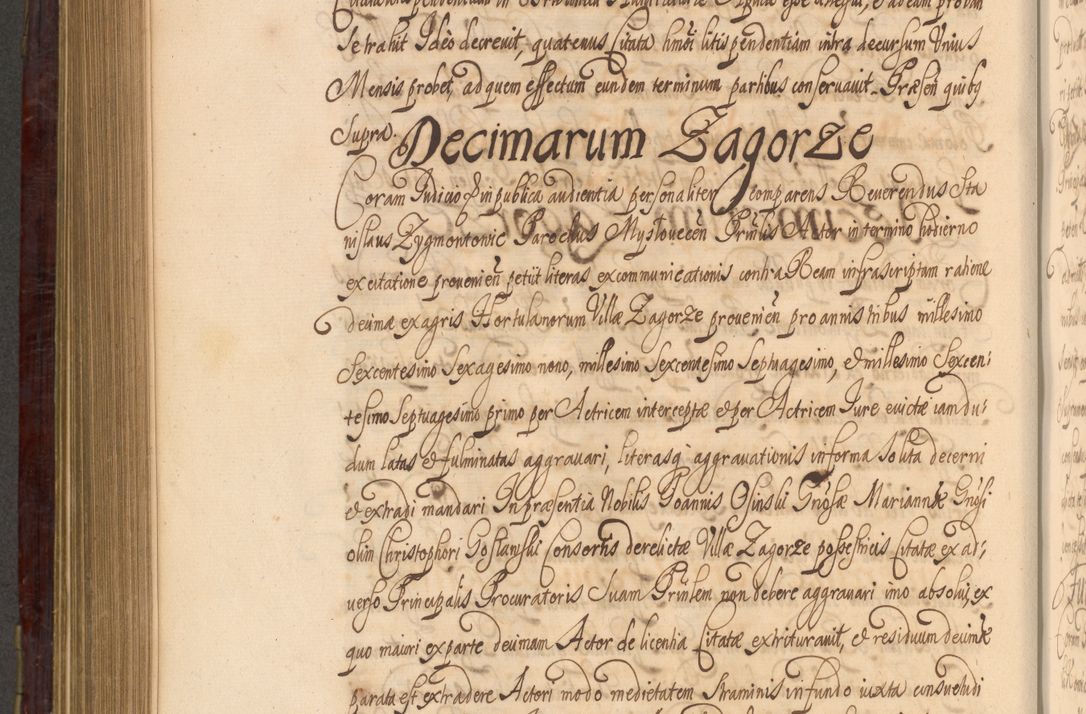 se trahit Ideo decrevit, quatenus Citata hmoi litis pendentiam intra decursum Unius
Mensis probet, ad quem effectum eundem terminum partibus conservavit. Præsen quibs
Supra.
Decimarum Zagorze
Coram Judicio & in publica audientia personaliter comparens Reverendus Sta
nislaus Zygmontowic Parochus Myslovecen Prinlis Actor in termino hodierno
ex citatione provenien petiit literas excommunicationis contra Ream infrascriptam ratione
decimæ ex agris Hortulanorum Villæ Zagorze provenien pro annis tribus millesimo
Sexcentesimo Sexagesimo nono, millesimo Sexcentesimo Septuagesimo, & millesimo Sexcen:
tesimo Septuagesimo primo per Actricem interceptæ & per Actricem Jure evictæ iam du:
dum latas & fulminatas aggravari, literasq aggravationis in forma solita decerni
& extradi mandari In præsentia Nobilis Joannis Osinski Gnosæ Mariannæ Gnosi
olim Christophori Gostanski Consortis derelictæ Villæ Zagorze possestricis Citatæ ex ad:
verso Principalis Procuratoris Suam Prinlem non debere aggravari imo absolui, ex
quo maiori ex parte decimam Actor de licentia Citatæ extrituravit, & residuum decimæ
parata est extradere Actori modo medietatem straminis in fundo iuxta consuetudi